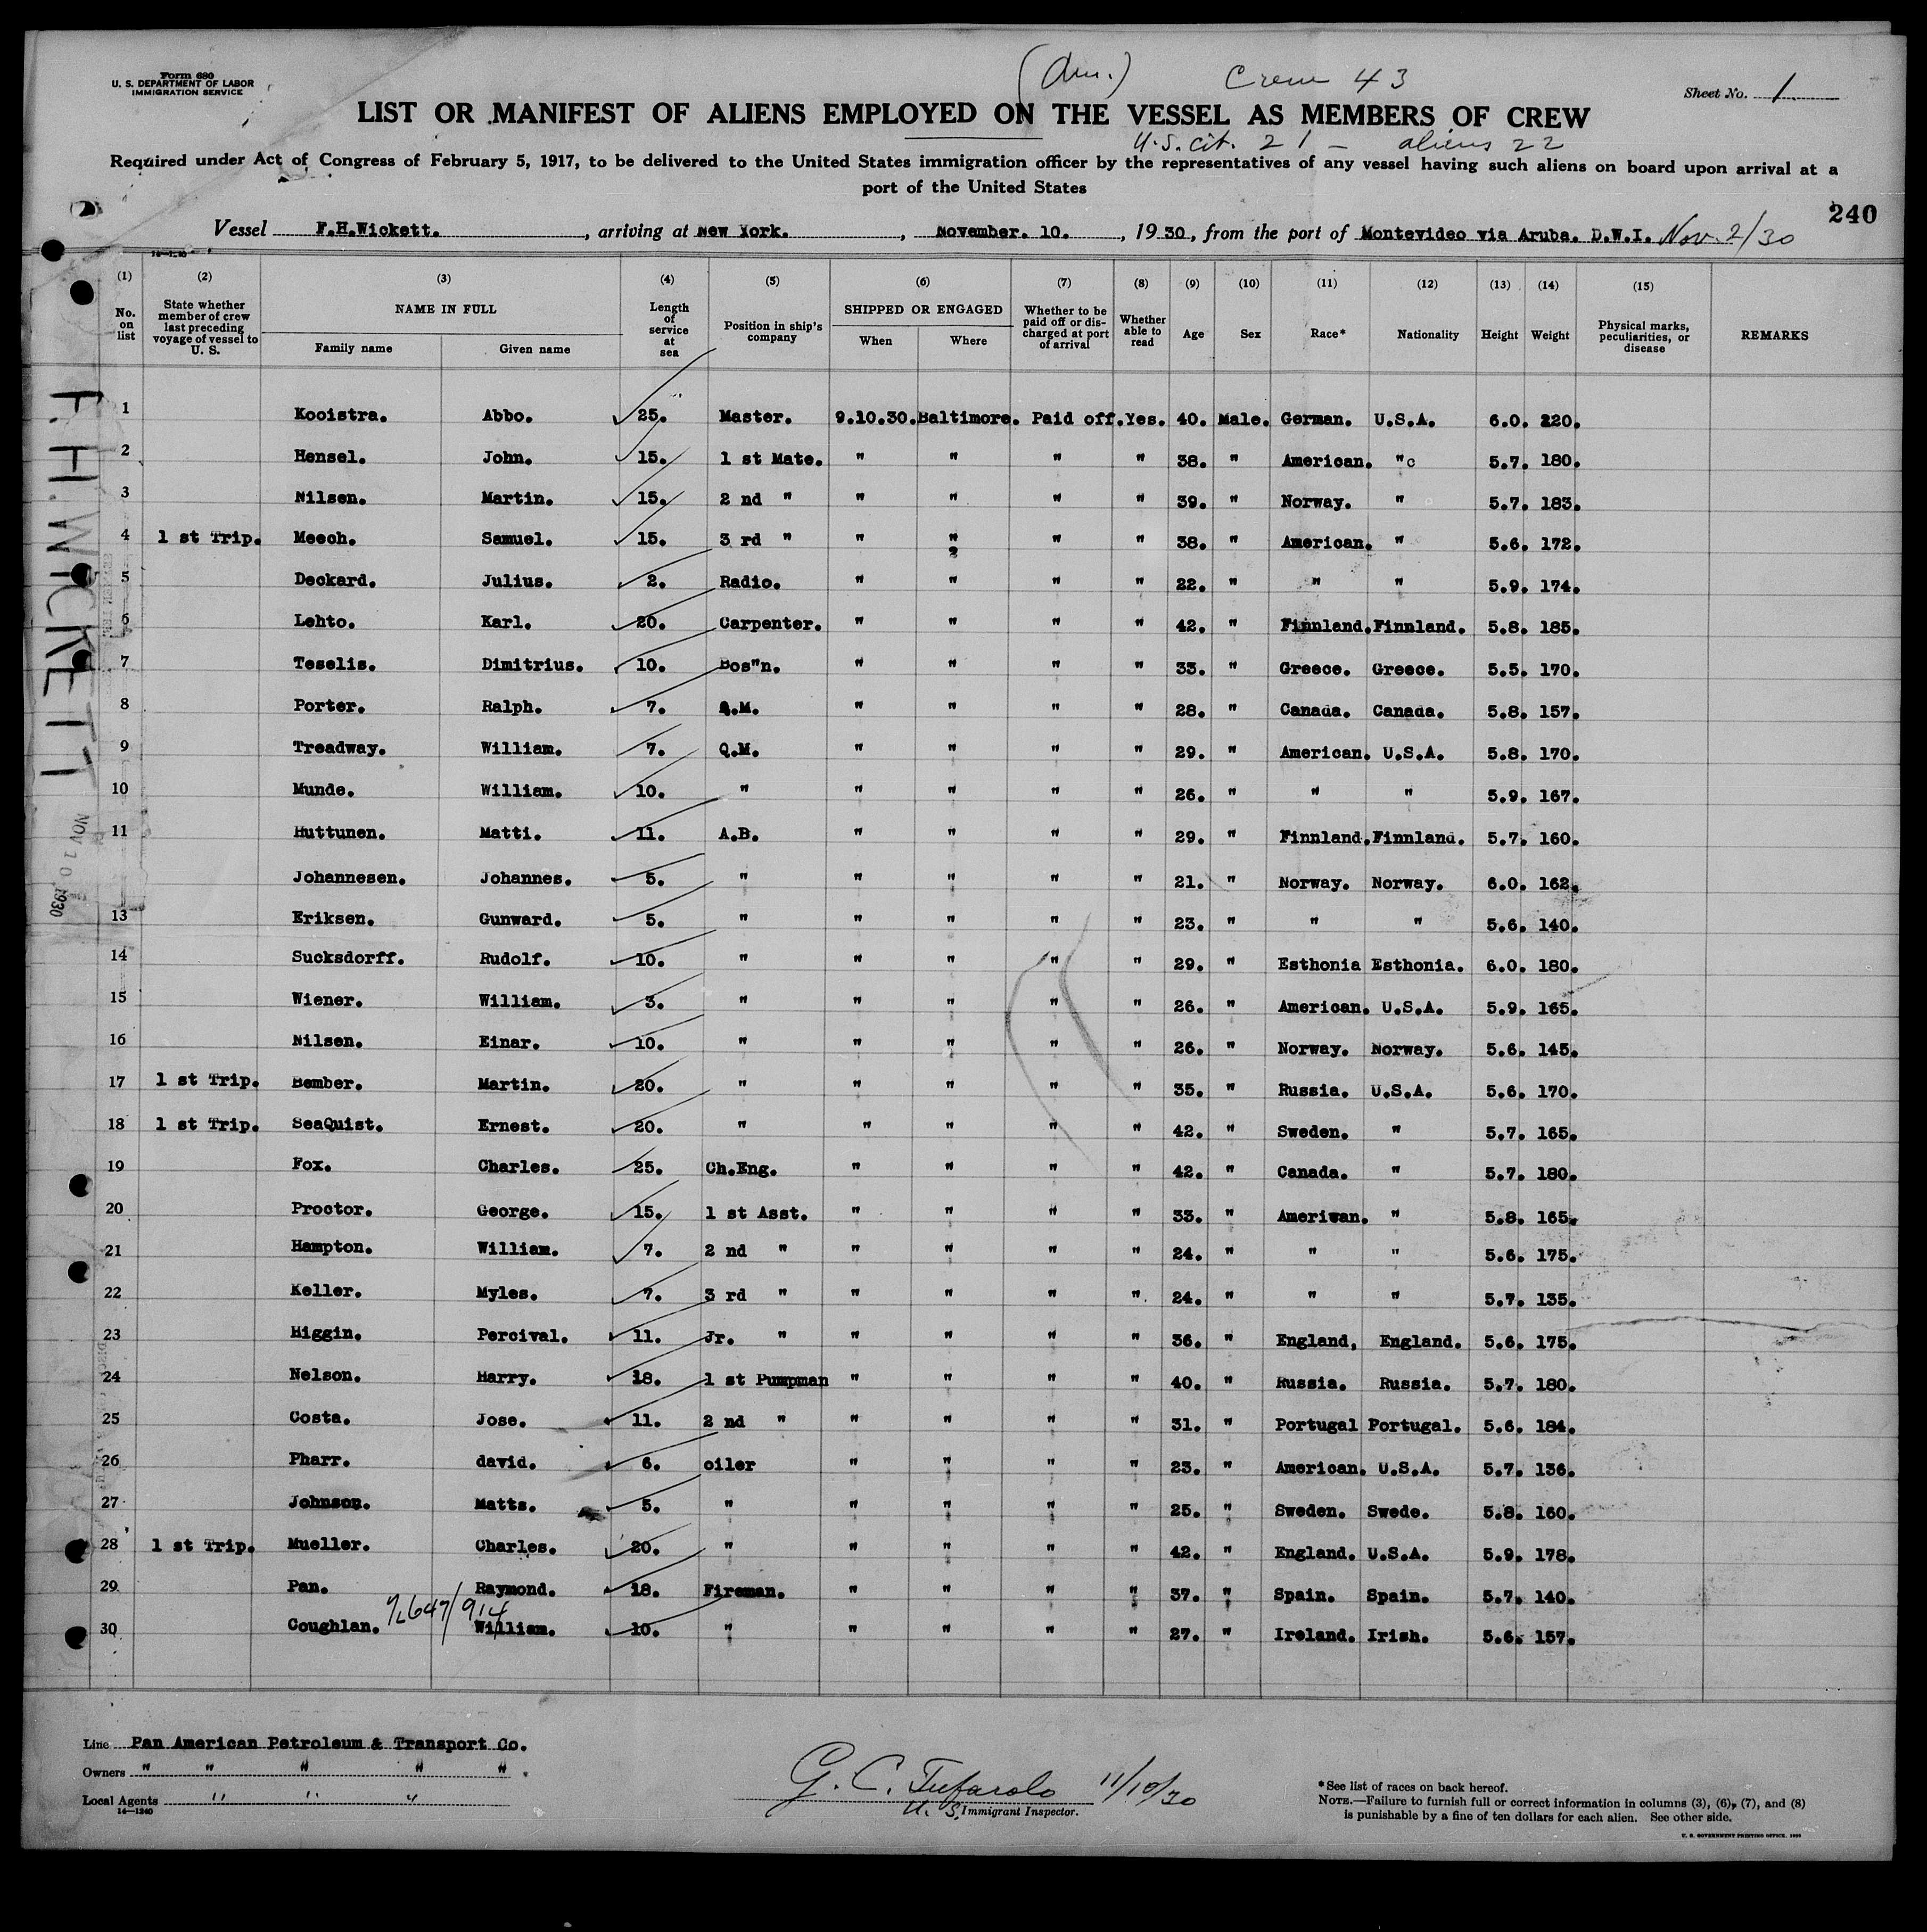 Form 680
U. S. DEPARTMENT OF LABOR
IMMIGRATION SERVICE
(Am.) Crew 43
Sheet No. 1.
LIST OR MANIFEST OF ALIENS EMPLOYED ON THE VESSEL AS MEMBERS OF CREW
U.S. cit. 21 — aliens 22
Required under Act of Congress of February 5, 1917, to be delivered to the United States immigration officer by the representatives of any vessel having such aliens on board upon arrival at a
port of the United States
240
Vessel F.H.Wickett. , arriving at New York. , November. 10. , 1930, from the port of Montevideo via Aruba. D.W.I. Nov. 2/30
(1) (2) (3) (4) (5) (6) (7) (8) (9) (10) (11) (12) (13) (14) (15)
No. on list State whether member of crew last preceding voyage of vessel to U. S. NAME IN FULL Family name Given name Length of service at sea Position in ship's company SHIPPED OR ENGAGED When Where Whether to be paid off or discharged at port of arrival Whether able to read Age Sex Race* Nationality Height Weight Physical marks, peculiarities, or disease REMARKS
1 Kooistra. Abbo. 25. Master. 9.10.30. Baltimore. Paid off. Yes. 40. Male. German. U.S.A. 6.0. 220.
2 Hensel. John. 15. 1 st Mate. " " " " 38. " American. "c 5.7. 180.
3 Nilsen. Martin. 15. 2 nd " " " " " 39. " Norway. " 5.7. 183.
4 1 st Trip. Meech. Samuel. 15. 3 rd " " " " " 38. " American. " 5.6. 172.
5 Deckard. Julius. 2. Radio. " " " " 22. " " " 5.9. 174.
6 Lehto. Karl. 20. Carpenter. " " " " 42. " Finnland. Finnland. 5.8. 185.
7 Teselis. Dimitrius. 10. Bos"n. " " " " 33. " Greece. Greece. 5.5. 170.
8 Porter. Ralph. 7. Q.M. " " " " 28. " Canada. Canada. 5.8. 157.
9 Treadway. William. 7. Q.M. " " " " 29. " American. U.S.A. 5.8. 170.
10 Munde. William. 10. " " " " " 26. " " " 5.9. 167.
11 Huttunen. Matti. 11. A.B. " " " " 29. " Finnland. Finnland. 5.7. 160.
Johannesen. Johannes. 5. " " " " " 21. " Norway. Norway. 6.0. 162.
13 Eriksen. Gunward. 5. " " " " " 23. " " " 5.6. 140.
14 Sucksdorff. Rudolf. 10. " " " " " 29. " Esthonia Esthonia. 6.0. 180.
15 Wiener. William. 3. " " " " " 26. " American. U.S.A. 5.9. 165.
16 Nilsen. Einar. 10. " " " " " 26. " Norway. Norway. 5.6. 145.
17 1 st Trip. Bember. Martin. 20. " " " " " 35. " Russia. U.S.A. 5.6. 170.
18 1 st Trip. SeaQuist. Ernest. 20. " " " " " 42. " Sweden. " 5.7. 165.
19 Fox. Charles. 25. Ch.Eng. " " " " 42. " Canada. " 5.7. 180.
20 Proctor. George. 15. 1 st Asst. " " " " 33. " Ameriwan. " 5.8. 165.
21 Hampton. William. 7. 2 nd " " " " " 24. " " " 5.6. 175.
22 Keller. Myles. 7. 3 rd " " " " " 24. " " " 5.7. 135.
23 Higgin. Percival. 11. Jr. " " " " " 36. " England, England. 5.6. 175.
24 Nelson. Harry. 18. 1 st Pumpman " " " " 40. " Russia. Russia. 5.7. 180.
25 Costa. Jose. 11. 2 nd " " " " " 31. " Portugal Portugal. 5.6. 184.
26 Pharr. david. 6. oiler " " " " 23. " American. U.S.A. 5.7. 136.
27 Johnson. Matts. 5. " " " " " 25. " Sweden. Swede. 5.8. 160.
28 1 st Trip. Mueller. Charles. 20. " " " " " 42. " England. U.S.A. 5.9. 178.
29 Pan. Raymond. 18. Fireman. " " " " 37. " Spain. Spain. 5.7. 140.
647/914
30 Coughlan. William. 10. " " " " " 27. " Ireland. Irish. 5.6. 157.
F. H. WICKETT
NOV 10 1930
Line Pan American Petroleum & Transport Co.
Owners " " " " " .
Local Agents " " "
14—1240
G. C. Tufarolo 11/10/30
U. S. Immigrant Inspector.
*See list of races on back hereof.
NOTE.—Failure to furnish full or correct information in columns (3), (6), (7), and (8)
is punishable by a fine of ten dollars for each alien. See other side.
U. S. GOVERNMENT PRINTING OFFICE.